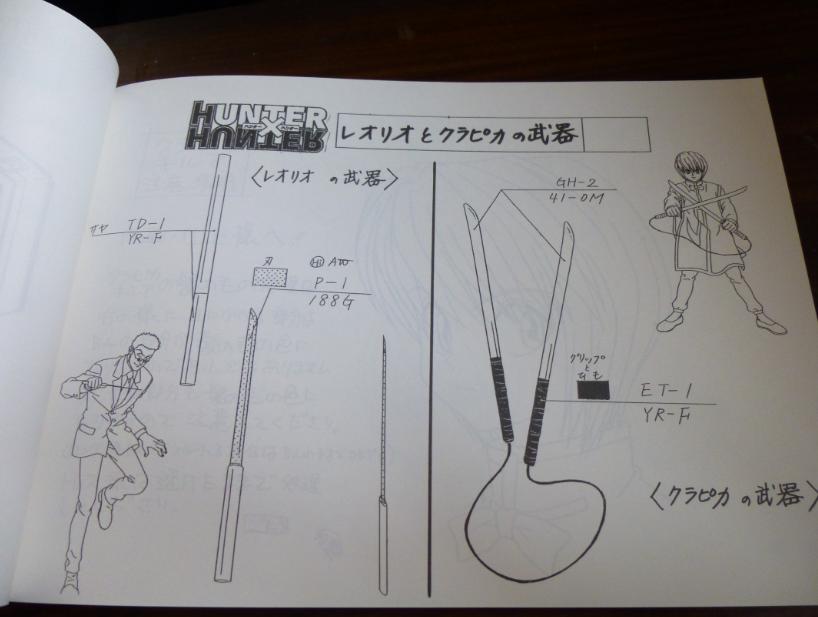 HUNTER
×
HUNTER
レオリオとクラピカの武器
〈レオリオ の武器〉
サヤ TD-1
YR-F
刃
P-1
188G
GH-2
41-0M
グリップ
と
ひも
ET-1
YR-F
〈クラピカ の武器〉